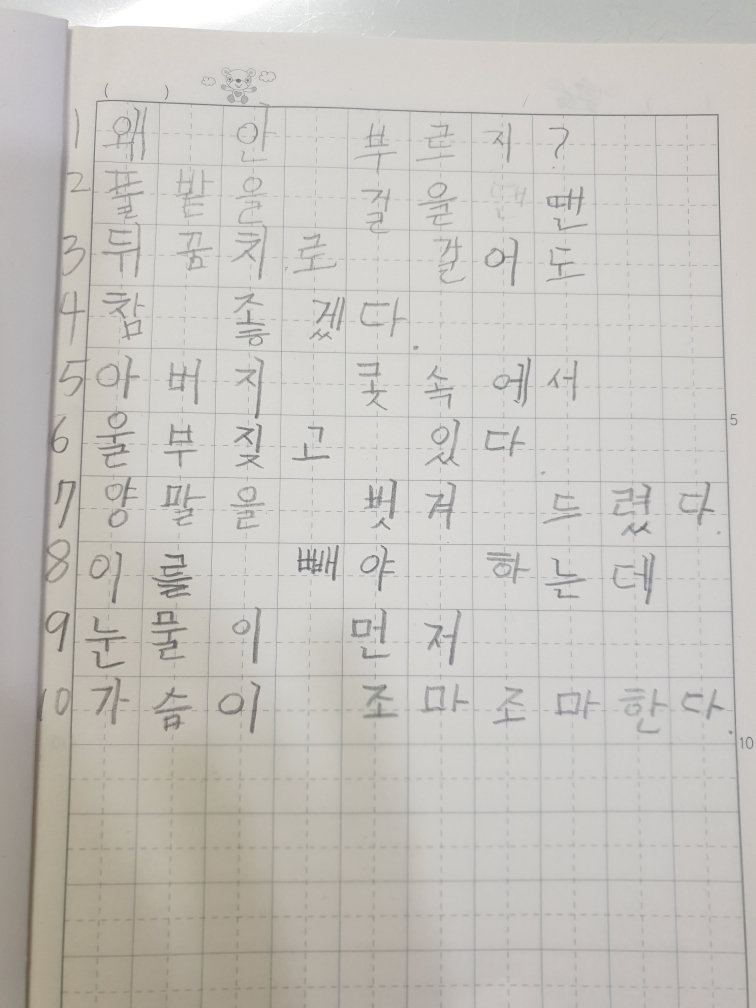 ( )
1 왜 안 부르지?
2 풀밭을 걸을 땐
3 뒤꿈치로 걸어도
4 참 좋겠다.
5 아버지 콧속에서 5
6 울부짖고 있다.
7 양말을 벗겨 드렸다.
8 이를 빼야 하는데
9 눈물이 먼저
10 가슴이 조마조마한다.
10